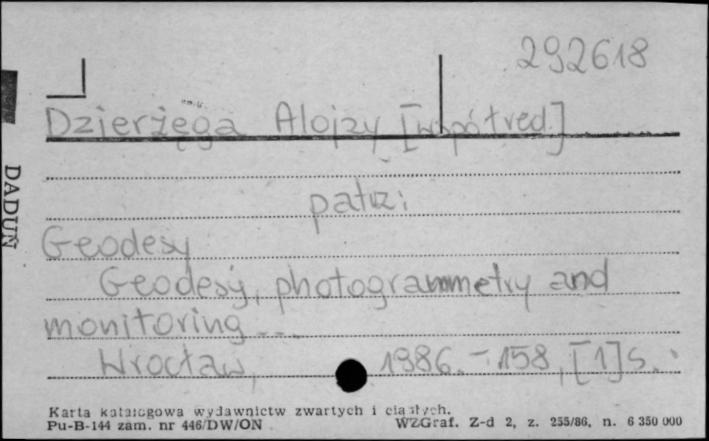 292618
Dzierżęga Alojzy [współred.]
patrz:
Geodesy
Geodesy, photogrammetry and
monitoring ...
Wrocław, 1986. - 158, [1] s.
DADUŃ
Karta katalogowa wydawnictw zwartych i ciągłych.
Pu-B-144 zam. nr 446/DW/ON WZGraf. Z-d 2, z. 255/86, n. 6 350 000